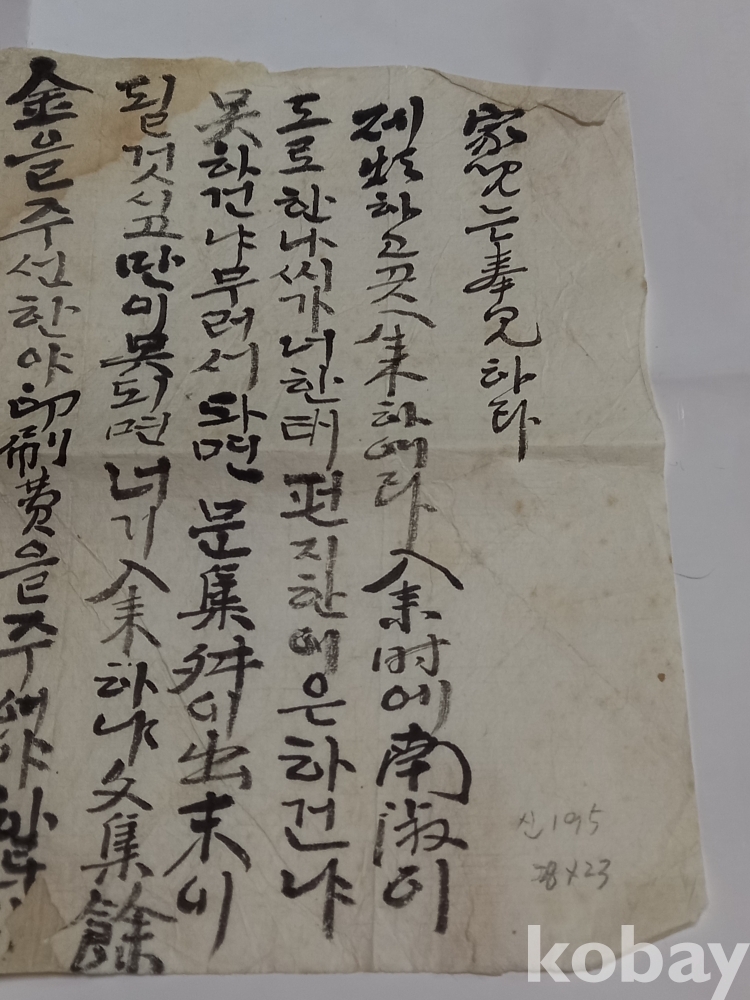 家兒는奉見하라
제하고곳入來하여라入來時에南淑이
도로한나씨가너한태편지한이은하건냐
못하건냐무러서와면문集舛이出末이
될것시고만이못되면너가入來하냐文集餘
金을주선한야印刷費을주에야한다
신195
28×23
kobay